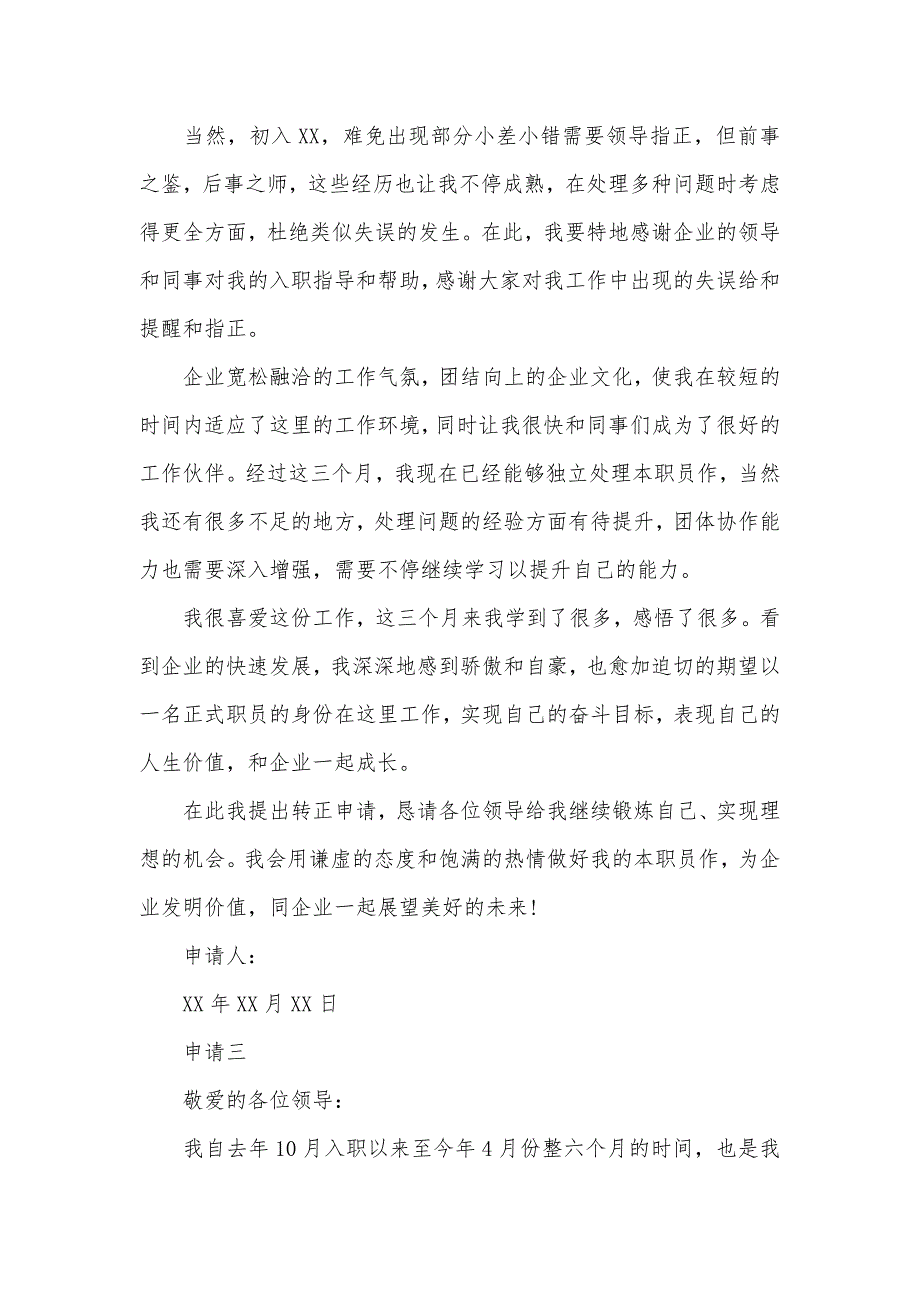 当然，初入XX，难免出现部分小差小错需要领导指正，但前事
之鉴，后事之师，这些经历也让我不停成熟，在处理多种问题时考虑
得更全方面，杜绝类似失误的发生。在此，我要特地感谢企业的领导
和同事对我的入职指导和帮助，感谢大家对我工作中出现的失误给和
提醒和指正。
企业宽松融洽的工作气氛，团结向上的企业文化，使我在较短的
时间内适应了这里的工作环境，同时让我很快和同事们成为了很好的
工作伙伴。经过这三个月，我现在已经能够独立处理本职员作，当然
我还有很多不足的地方，处理问题的经验方面有待提升，团体协作能
力也需要深入增强，需要不停继续学习以提升自己的能力。
我很喜爱这份工作，这三个月来我学到了很多，感悟了很多。看
到企业的快速发展，我深深地感到骄傲和自豪，也愈加迫切的期望以
一名正式职员的身份在这里工作，实现自己的奋斗目标，表现自己的
人生价值，和企业一起成长。
在此我提出转正申请，恳请各位领导给我继续锻炼自己、实现理
想的机会。我会用谦虚的态度和饱满的热情做好我的本职员作，为企
业发明价值，同企业一起展望美好的未来!
申请人：
XX 年 XX 月 XX 日
申请三
敬爱的各位领导：
我自去年 10 月入职以来至今年 4 月份整六个月的时间，也是我